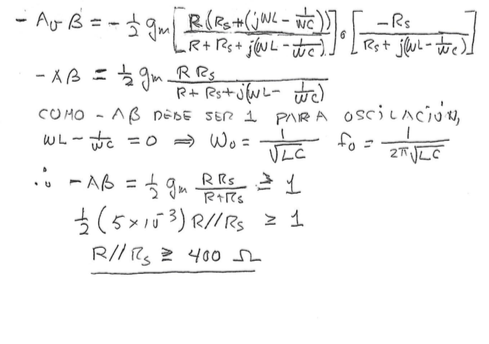 - A_v β = - 1/2 g_m [ R (R_S + (jWL - 1/WC)) / R + R_S + j(WL - 1/WC) ] · [ -R_S / R_S + j(WL - 1/WC) ]
- Aβ = 1/2 g_m R R_S / R + R_S + j(WL - 1/WC)
COMO - Aβ DEBE SER 1 PARA OSCILACIÓN,
WL - 1/WC = 0 ⇒ W_o = 1/√LC f_o = 1/2π√LC
∴ - Aβ = 1/2 g_m R R_S / R+R_S ≥ 1
1/2 (5×10^-3) R//R_S ≥ 1
R//R_S ≥ 400 Ω